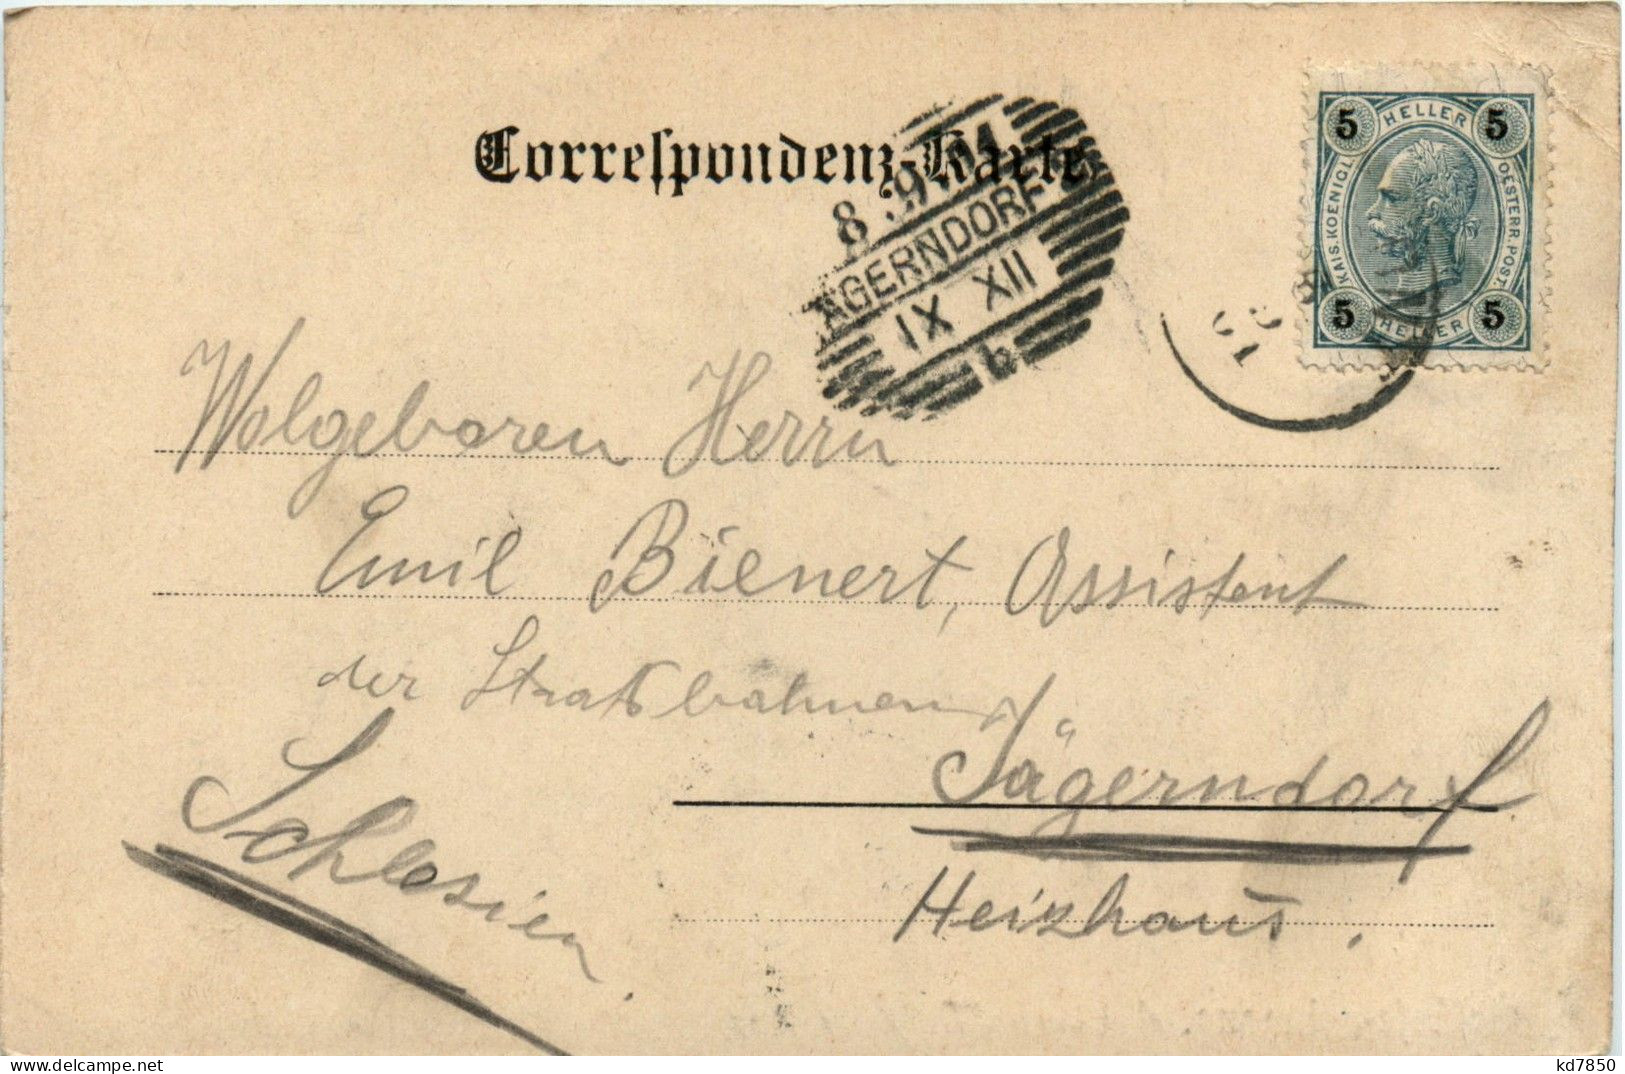 Correspondenz-Karte
8 9 01
JÄGERNDORF
IX XII
b
5 HELLER 5
KAIS. KOENIGL. OESTERR. POST.
5 HELLER 5
8
9
01
Wolgeboren Herrn
Emil Bienert, Assistent
der Staatsbahnen
Jägerndorf
Schlesien.
Heizhaus.
delcampe.net
kd7850